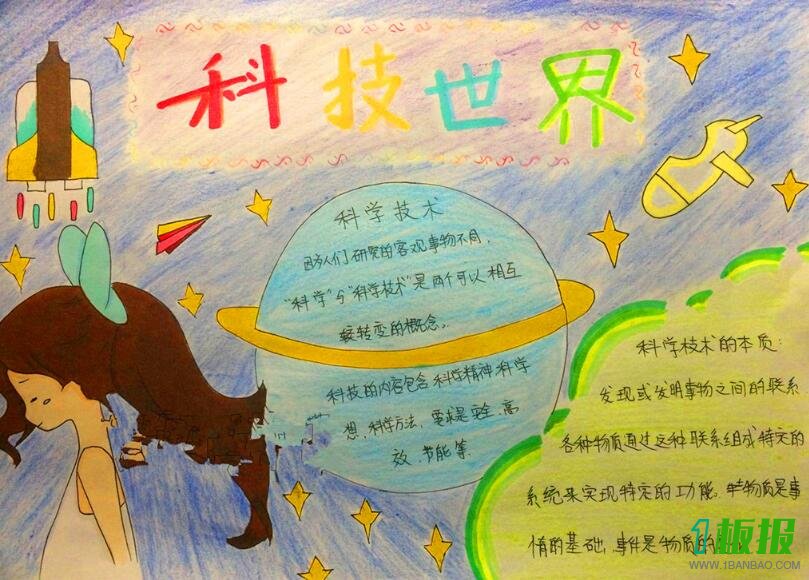 科技世界
科学技术
因为人们研究的客观事物不同,
"科学"与"科学技术"是两个可以相互
转变的概念。
科技的内容包含科学精神科学
想、科学方法, 要求是安全、高
效、节能等.
科学技术的本质:
发现或发明事物之间的联系
各种物质通过这种联系组成特定的
系统来实现特定的功能. 物质是事
情的基础, 事件是物质的
1板报
WWW.1BANBAO.COM